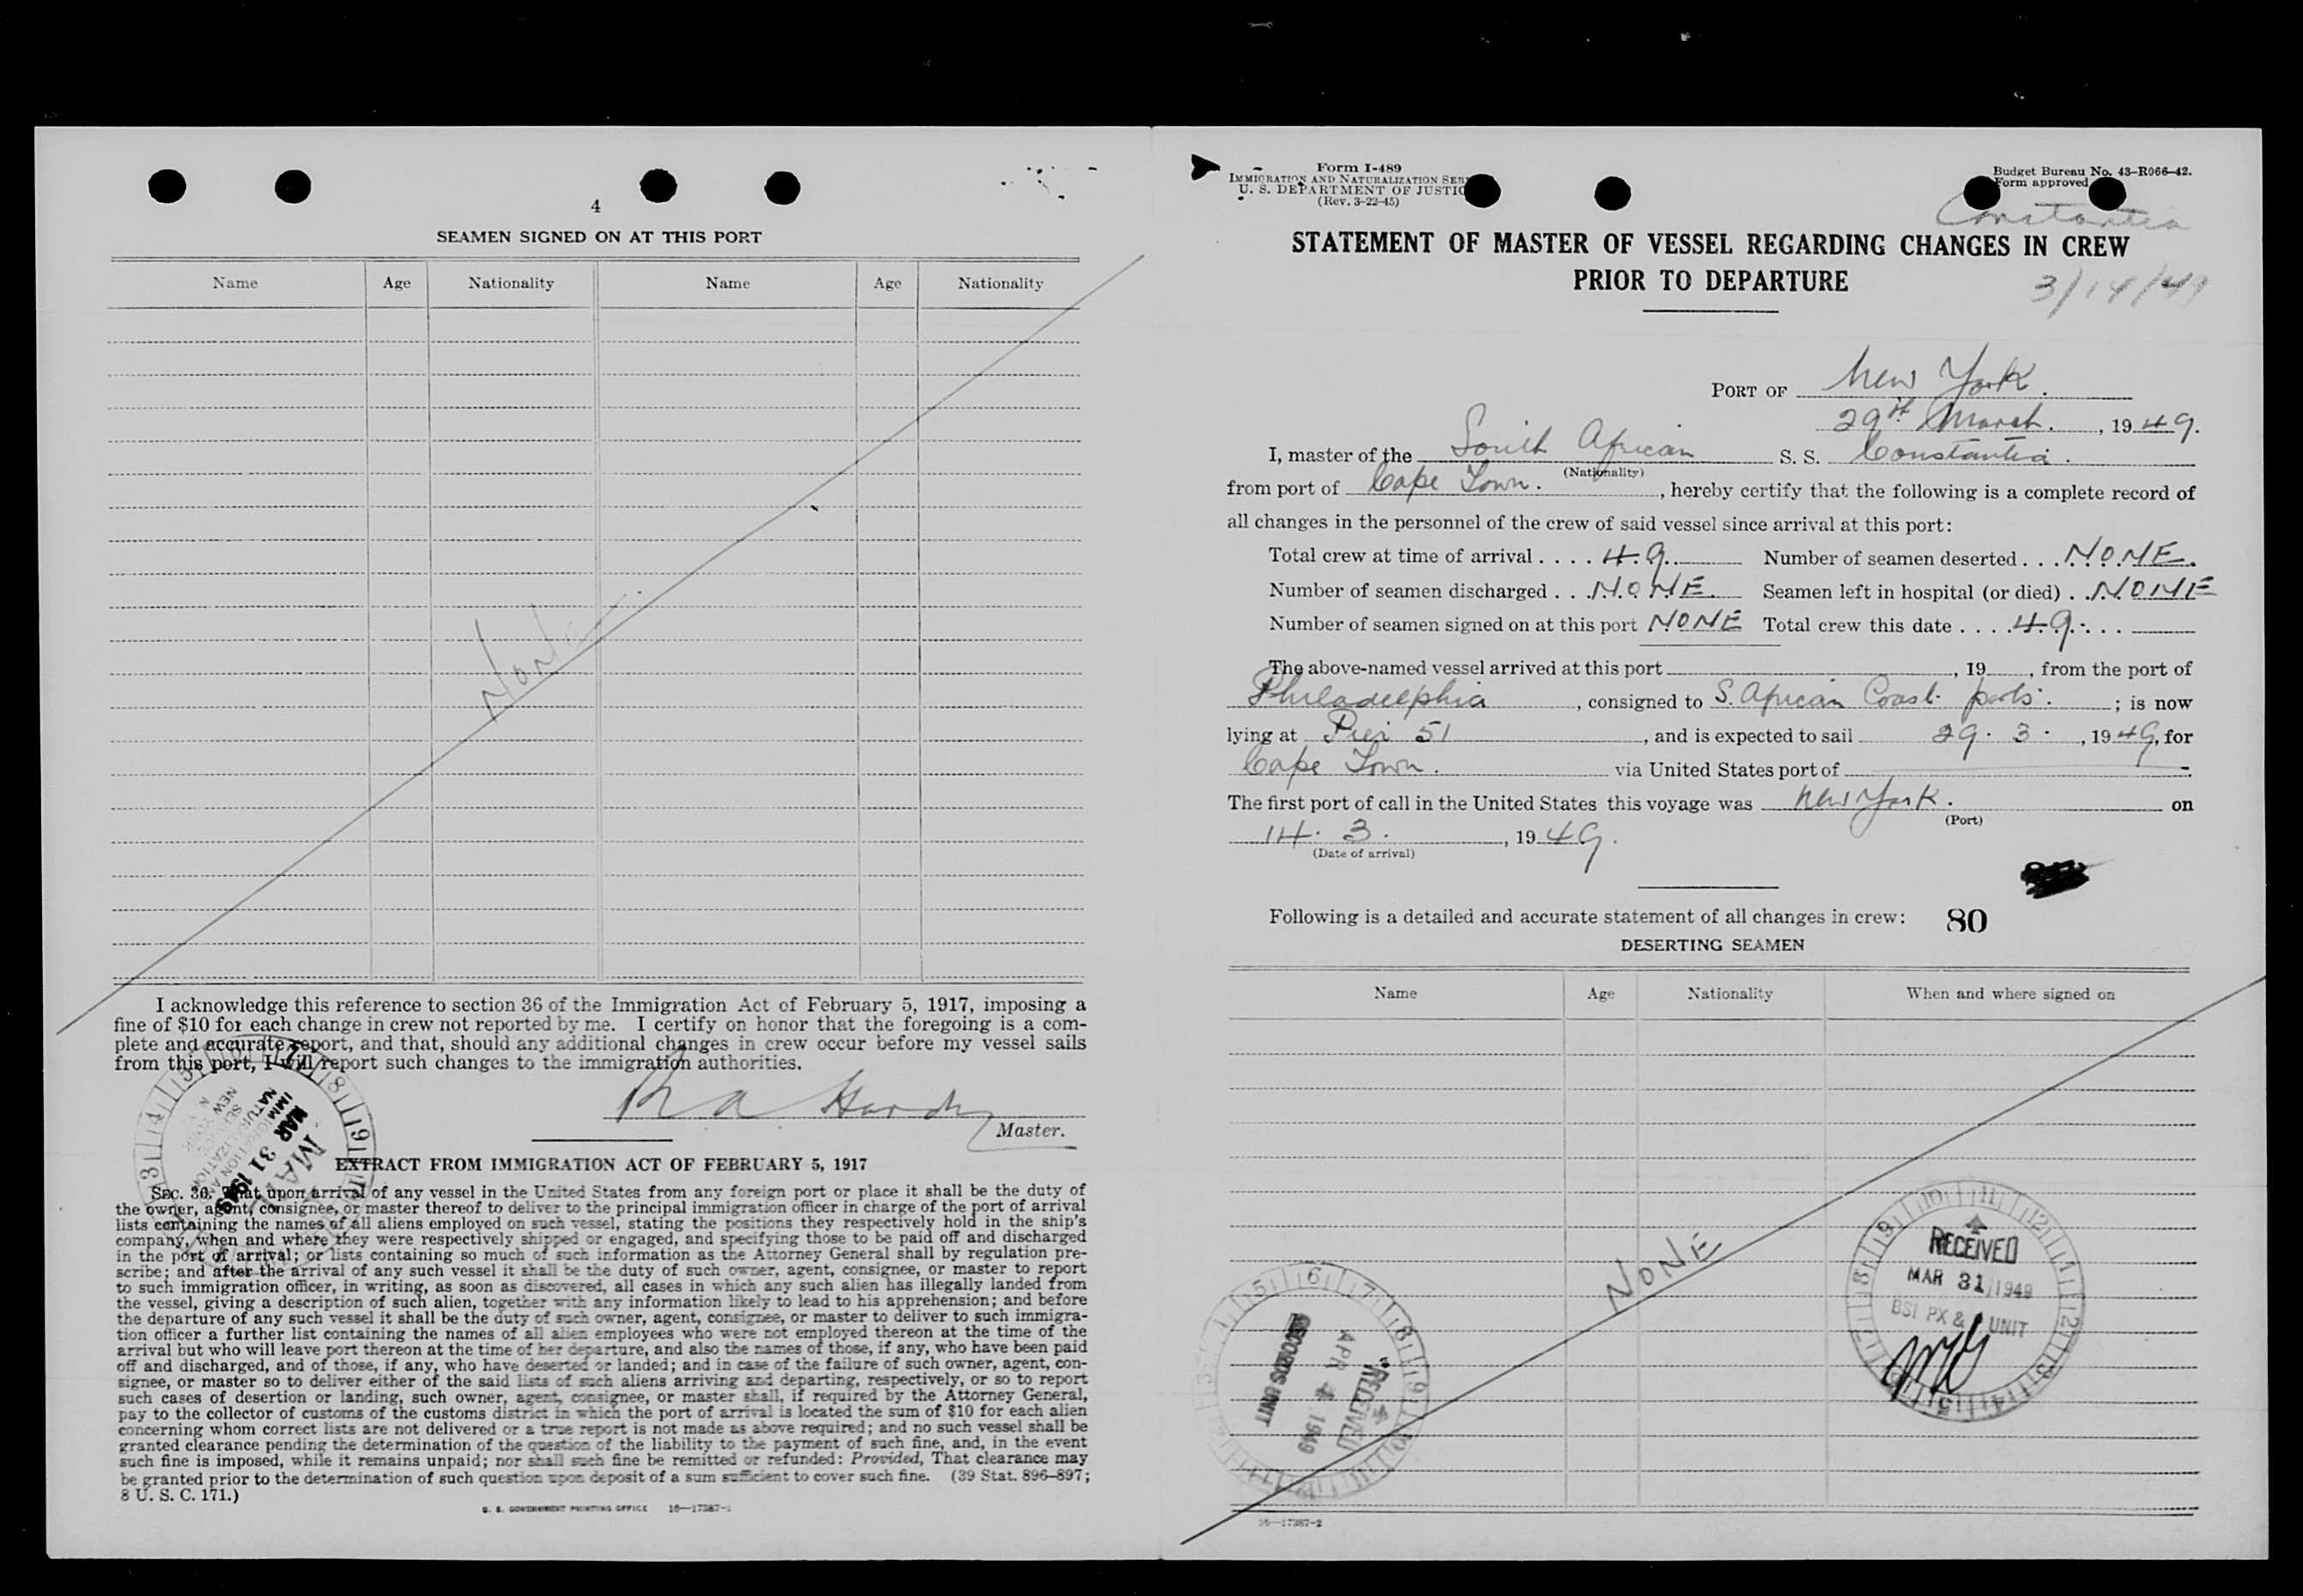 4
SEAMEN SIGNED ON AT THIS PORT
Name Age Nationality Name Age Nationality
None
I acknowledge this reference to section 36 of the Immigration Act of February 5, 1917, imposing a
fine of $10 for each change in crew not reported by me. I certify on honor that the foregoing is a com-
plete and accurate report, and that, should any additional changes in crew occur before my vessel sails
from this port, I will report such changes to the immigration authorities.
Hardy
Master.
MAR 31 1949
EXTRACT FROM IMMIGRATION ACT OF FEBRUARY 5, 1917
SEC. 36. That upon arrival of any vessel in the United States from any foreign port or place it shall be the duty of
the owner, agent, consignee, or master thereof to deliver to the principal immigration officer in charge of the port of arrival
lists containing the names of all aliens employed on such vessel, stating the positions they respectively hold in the ship's
company, when and where they were respectively shipped or engaged, and specifying those to be paid off and discharged
in the port of arrival; or lists containing so much of such information as the Attorney General shall by regulation pre-
scribe; and after the arrival of any such vessel it shall be the duty of such owner, agent, consignee, or master to report
to such immigration officer, in writing, as soon as discovered, all cases in which any such alien has illegally landed from
the vessel, giving a description of such alien, together with any information likely to lead to his apprehension; and before
the departure of any such vessel it shall be the duty of such owner, agent, consignee, or master to deliver to such immigra-
tion officer a further list containing the names of all alien employees who were not employed thereon at the time of the
arrival but who will leave port thereon at the time of her departure, and also the names of those, if any, who have been paid
off and discharged, and of those, if any, who have deserted or landed; and in case of the failure of such owner, agent, con-
signee, or master so to deliver either of the said lists of such aliens arriving and departing, respectively, or so to report
such cases of desertion or landing, such owner, agent, consignee, or master shall, if required by the Attorney General,
pay to the collector of customs of the customs district in which the port of arrival is located the sum of $10 for each alien
concerning whom correct lists are not delivered or a true report is not made as above required; and no such vessel shall be
granted clearance pending the determination of the question of the liability to the payment of such fine, and, in the event
such fine is imposed, while it remains unpaid; nor shall such fine be remitted or refunded: Provided, That clearance may
be granted prior to the determination of such question upon deposit of a sum sufficient to cover such fine. (39 Stat. 896–897;
8 U. S. C. 171.)
U. S. GOVERNMENT PRINTING OFFICE 16—17387-1
Form I-489
IMMIGRATION AND NATURALIZATION SER
U. S. DEPARTMENT OF JUSTIC
(Rev. 3-22-45)
Budget Bureau No. 43–R066–42.
Form approved
Constantia
STATEMENT OF MASTER OF VESSEL REGARDING CHANGES IN CREW
PRIOR TO DEPARTURE
3/14/49
PORT OF New York.
29th March. , 19 49.
I, master of the South African S. S. Constantia.
(Nationality)
from port of Cape Town. , hereby certify that the following is a complete record of
all changes in the personnel of the crew of said vessel since arrival at this port:
Total crew at time of arrival .... 49. Number of seamen deserted ... NONE.
Number of seamen discharged ... NONE. Seamen left in hospital (or died) .. NONE
Number of seamen signed on at this port NONE Total crew this date .... 49.
The above-named vessel arrived at this port , 19 , from the port of
Philadelphia , consigned to S. African Coast ports. ; is now
lying at Pier 51 , and is expected to sail 29. 3. , 19 49, for
Cape Town. via United States port of
The first port of call in the United States this voyage was New York. on
(Port)
14. 3. , 19 49.
(Date of arrival)
Following is a detailed and accurate statement of all changes in crew: 80
DESERTING SEAMEN
Name Age Nationality When and where signed on
NONE
RECEIVED
MAR 31 1949
BSI PX & UNIT
RECEIVED
APR 4 1949
RECORDS UNIT
16—17387-2